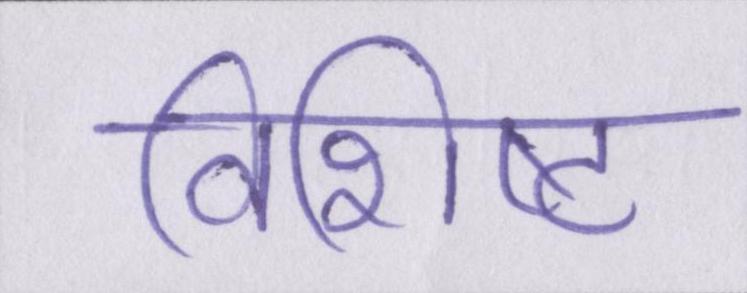 विशिष्ट